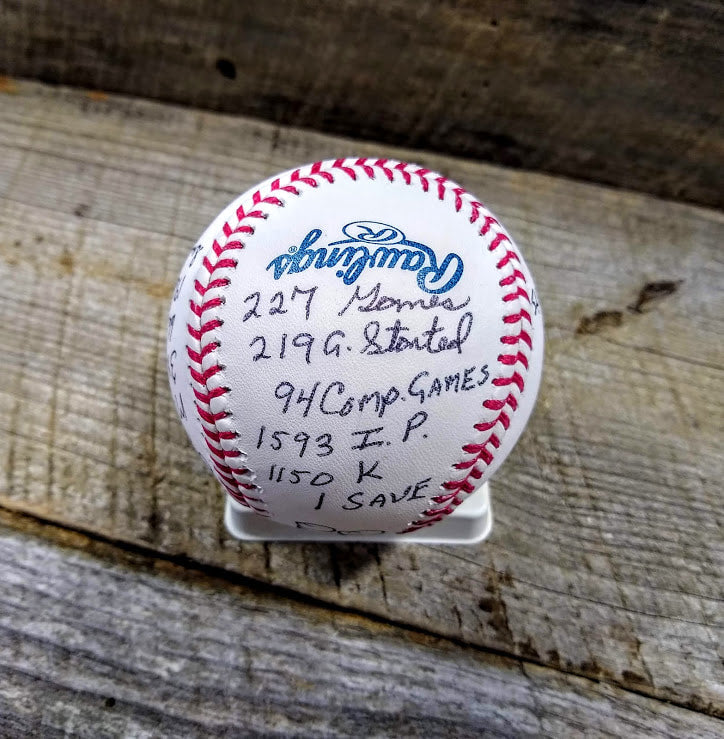 Rawlings®
R
227 Games
219 G. Started
94 Comp. GAMES
1593 I. P.
1150 K
1 SAVE